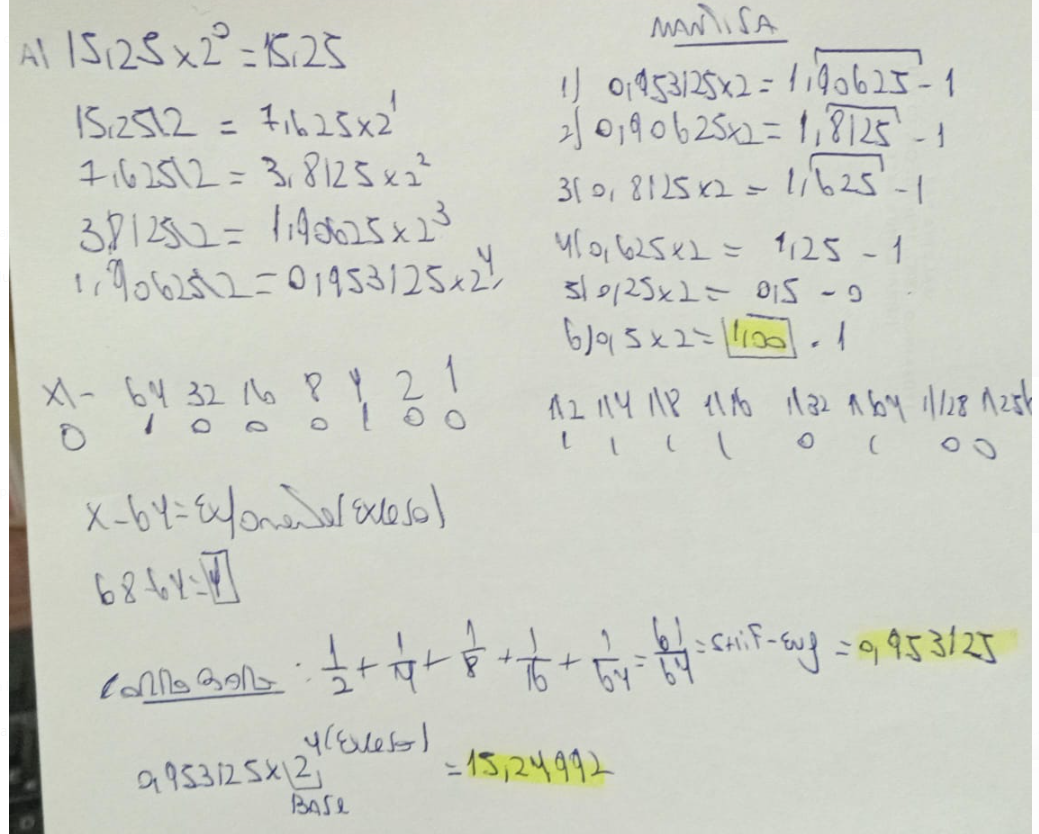 A) 15,25 x 2⁰ = 15,25
15,25\2 = 7,625 x 2¹
7,625\2 = 3,8125 x 2²
3,8125\2 = 1,90625 x 2³
1,90625\2 = 0,953125 x 2⁴
MANTISA
1) 0,953125x2 = 1,90625 - 1
2) 0,90625x2 = 1,8125 - 1
3) 0,8125 x2 = 1,625 - 1
4) 0,625x2 = 1,25 - 1
5) 0,25x2 = 0,5 - 0
6) 0,5 x 2 = 1,00 - 1
64 32 16 8 4 2 1
0 1 0 0 0 1 0 0
1\2 1\4 1\8 1\16 1\32 1\64 1/128 1\256
1 1 1 1 0 1 0 0
X-64 = Exponente (Exceso)
68-64 = 4
: 1/2 + 1/4 + 1/8 + 1/16 + 1/64 = 61/64 = = 0,953125
0,953125 x 2 4 (Exceso) = 15,24992
BASE